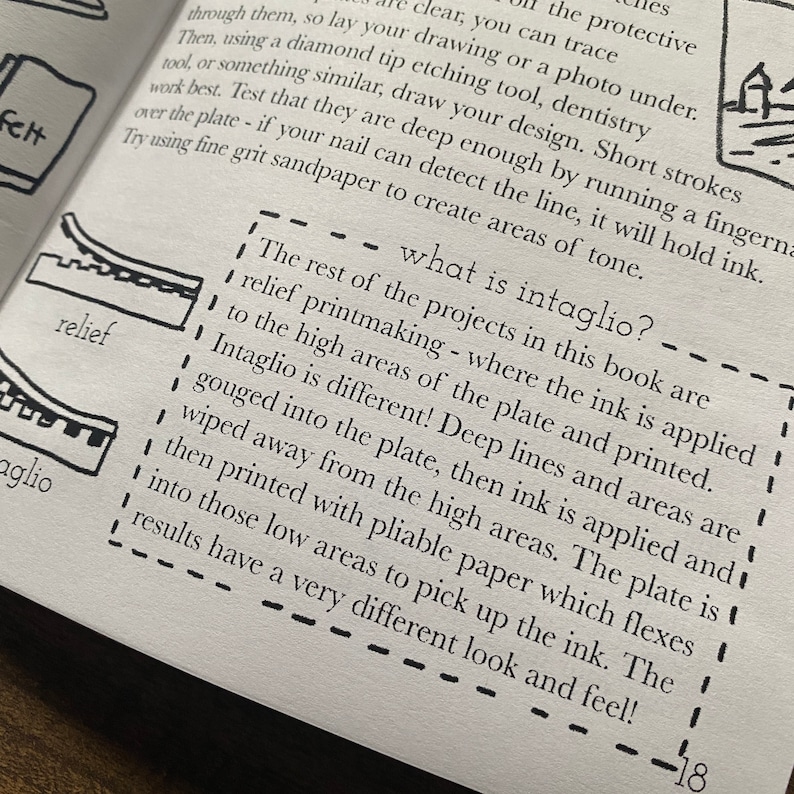 the protective
are clear, you can trace
through them, so lay your drawing or a photo under.
Then, using a diamond tip etching tool, dentistry
tool, or something similar, draw your design. Short strokes
work best. Test that they are deep enough by running a
over the plate - if your nail can detect the line, it will hold ink.
Try using fine grit sandpaper to create areas of tone.
felt
relief
what is intaglio?
The rest of the projects in this book are
relief printmaking - where the ink is applied
to the high areas of the plate and printed.
Intaglio is different! Deep lines and areas are
gouged into the plate, then ink is applied and
wiped away from the high areas. The plate is
then printed with pliable paper which flexes
into those low areas to pick up the ink. The
results have a very different look and feel!
18